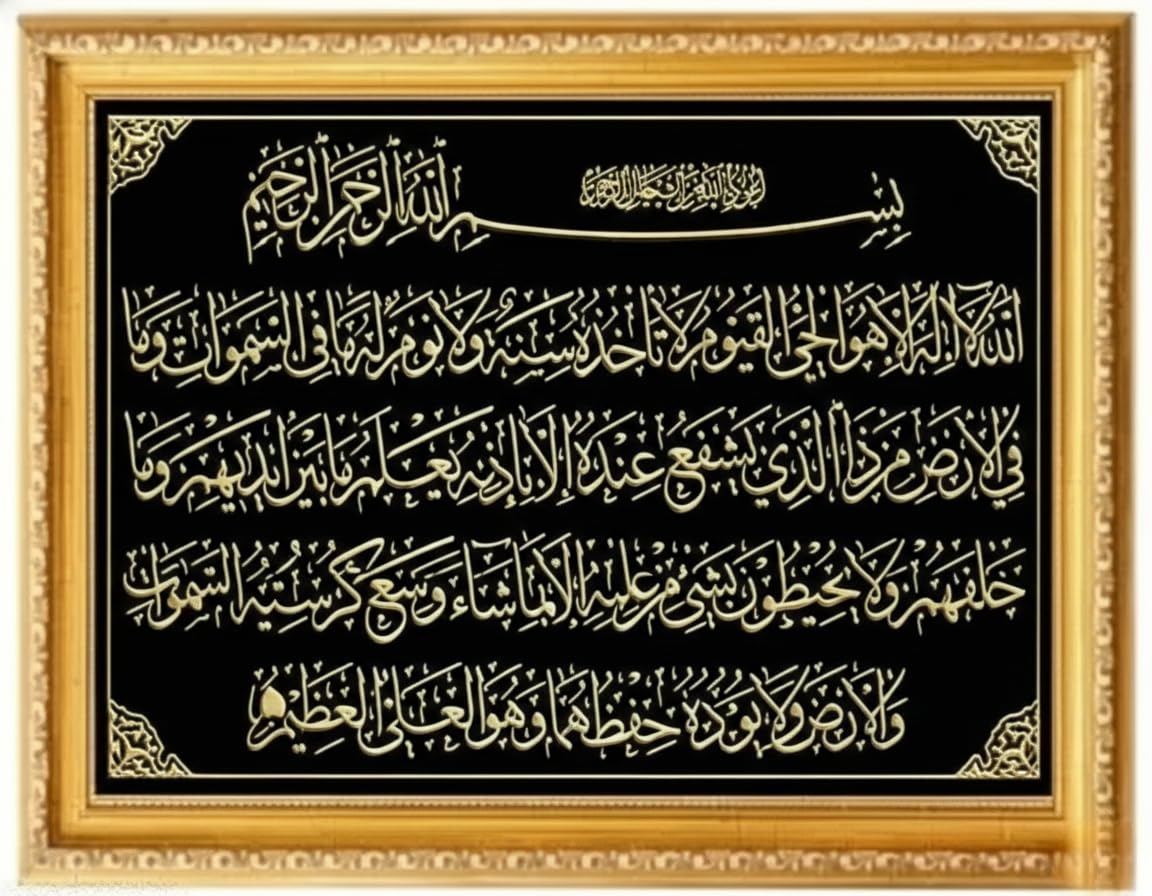 بسم الله الرحمن الرحيم
الله لا اله الا هو الحي القيوم لا تأخذه سنة ولا نوم له ما في السموات وما
في الارض من ذا الذي يشفع عنده إلا بإذنه يعلم ما بين ايديهم وما
خلفهم ولا يحيطون بشيء من علمه إلا بما شاء وسع كرسيه السموات
والارض ولا يؤده حفظهما وهو العلي العظيم